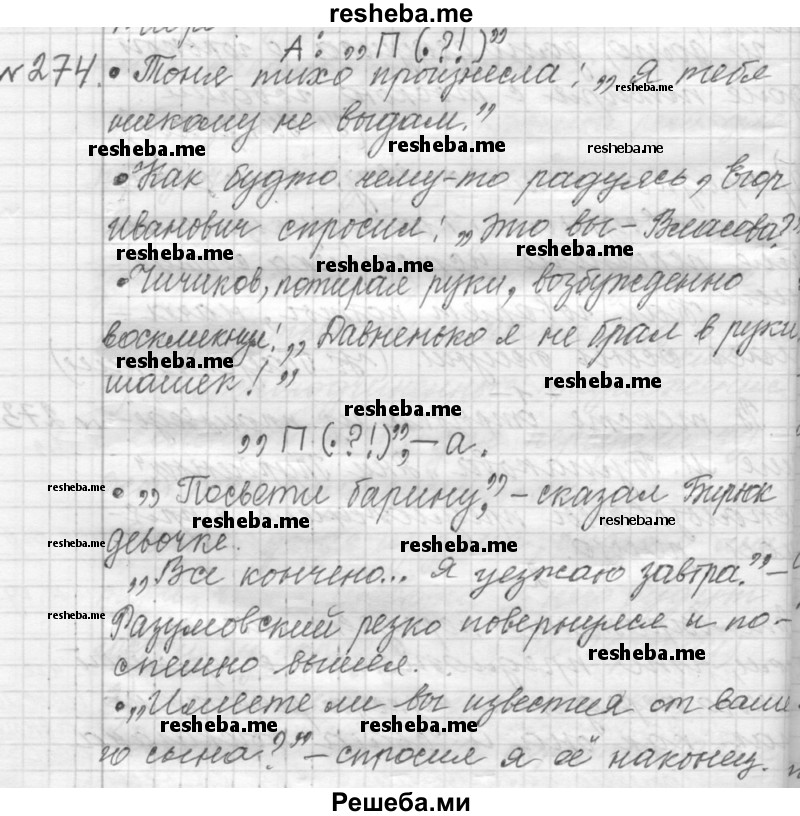 resheba.me
А: „П (.?!)"
№274. • Тоня тихо произнесла: „Я тебя
resheba.me
никому не выдам."
resheba.me resheba.me resheba.me
• Как будто чему-то радуясь, Егор
Иванович спросил: „Это вы – Власова?"
resheba.me resheba.me resheba.me
• Чичиков, потирая руки, возбужденно
воскликнул: „Давненько я не брал в руки
resheba.me resheba.me
шашек!"
resheba.me
„П (.?!)", – а.
resheba.me • „Посвети барину", – сказал Бирюк
resheba.me resheba.me
resheba.me девочке. resheba.me
„Все кончено... Я уезжаю завтра." –
resheba.me Разумовский резко повернулся и по-
спешно вышел. resheba.me
• „Имеете ли вы известия от ваше-
resheba.me resheba.me
го сына?" – спросил я её наконец.
Решеба.ми